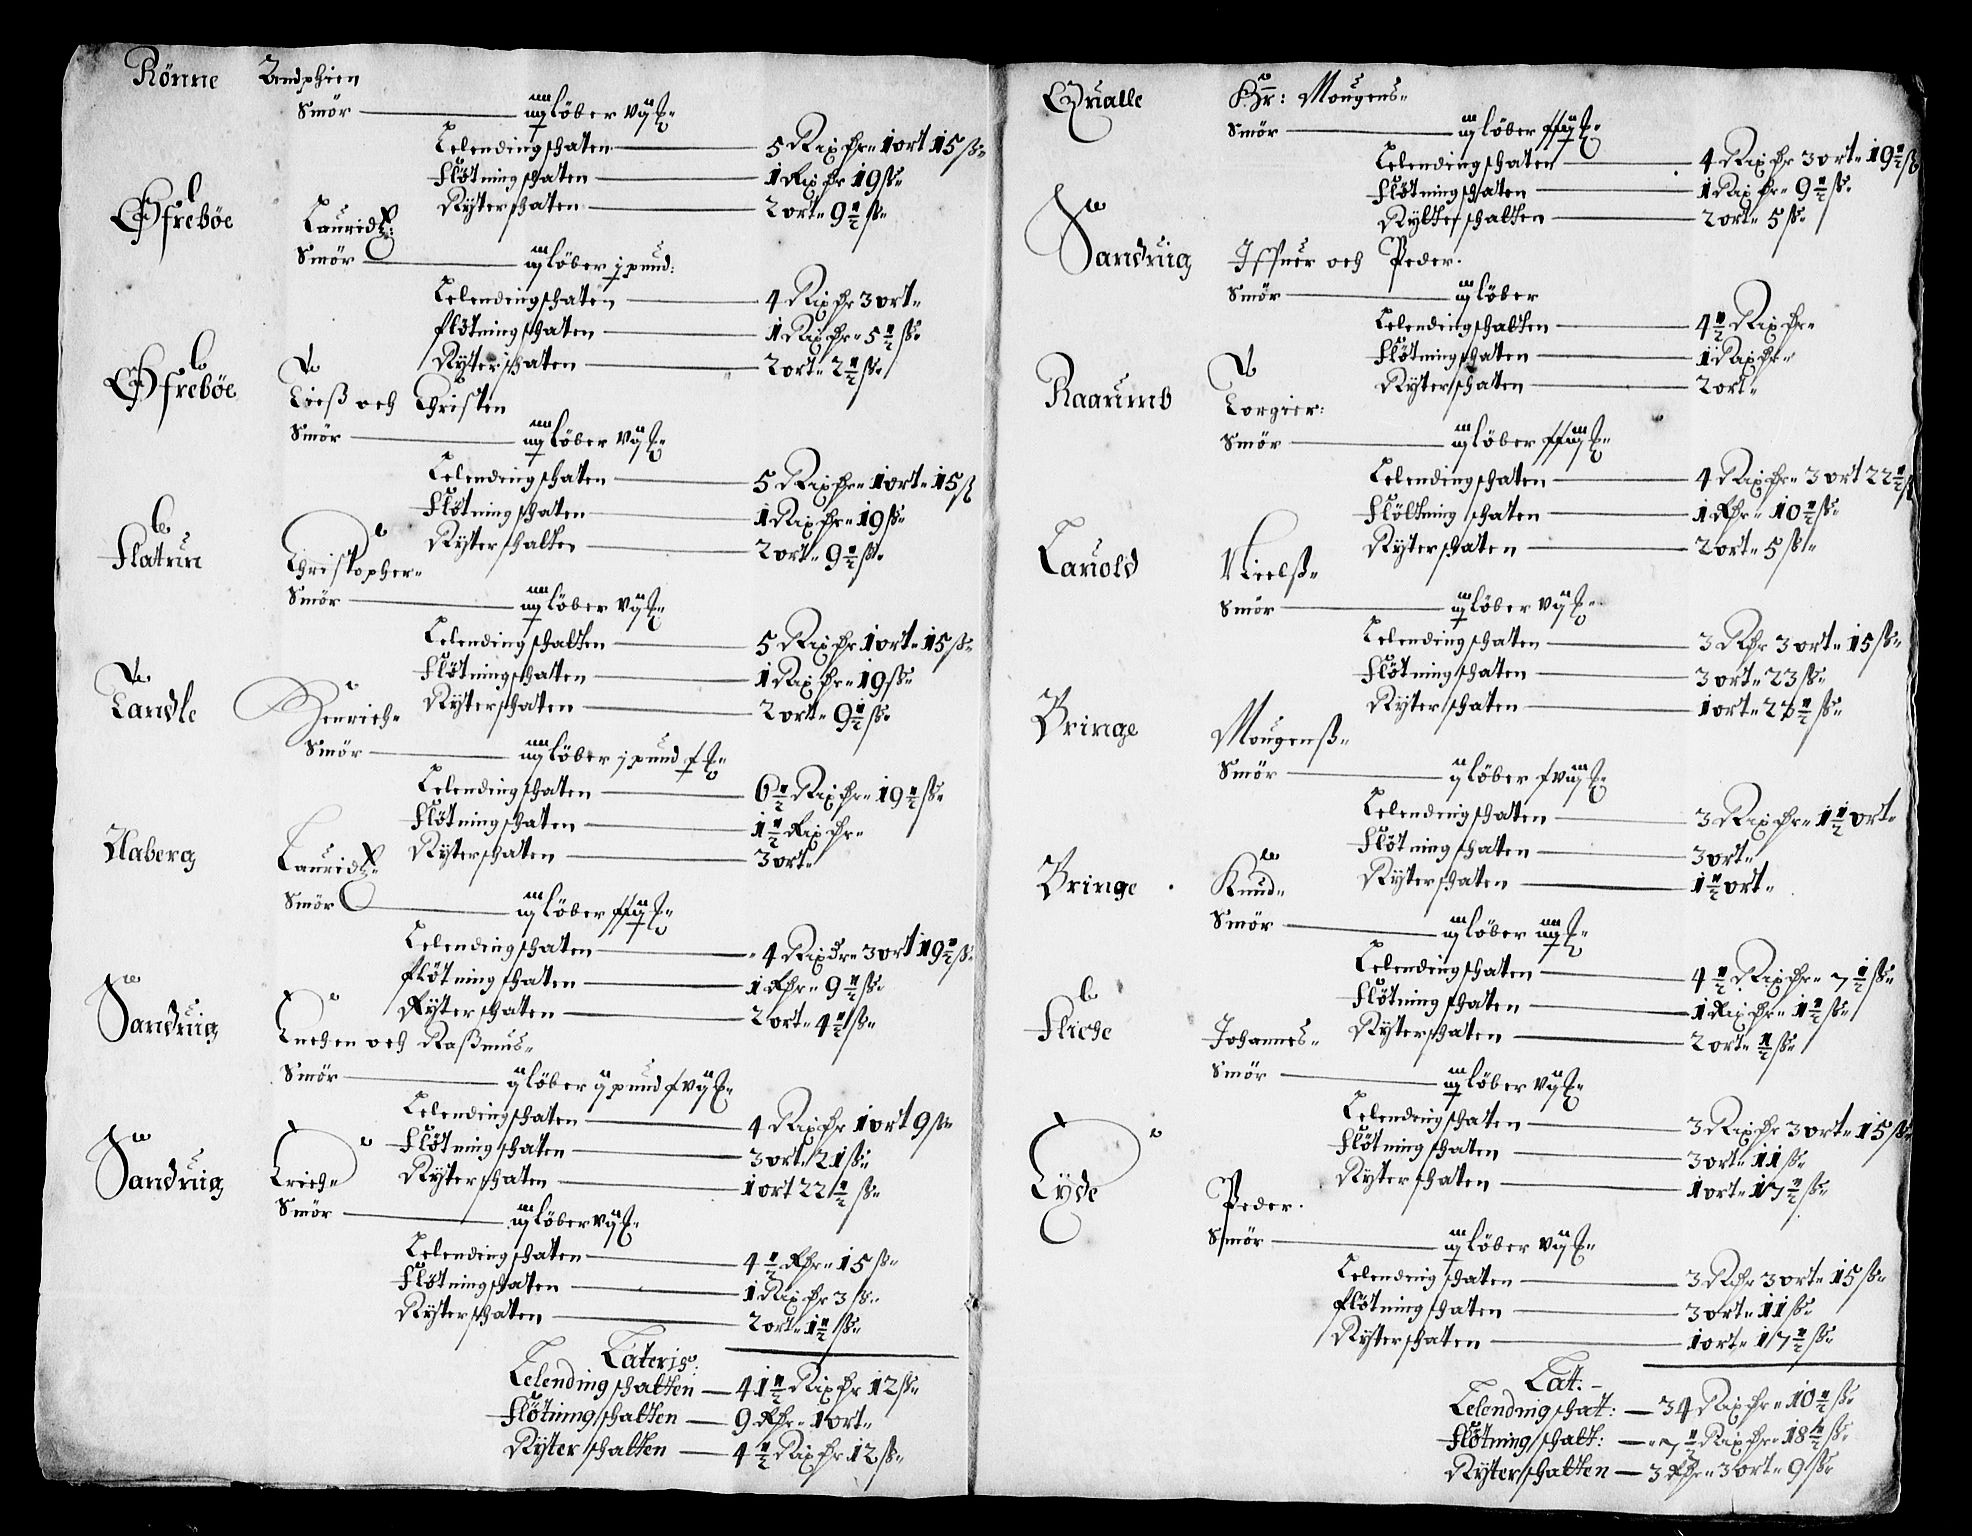 Rönne
Smör — iiij löber vij
Lelendingschaten — 5 Rixdr 1 ort 15 ß
Flötningschaten — 1 Rixdr 19 ß
Ryterschaten — 2 ort 9½ ß
Øfrebøe Lauridz:
Smör — iij löber j pund:
Lelendingschaten — 4 Rixdr 3 ort
flötningschaten — 1 Rixdr 5½ ß
Ryterschaten — 2 ort 2½ ß
Øfrebøe och Christen
Smör — iiij löber vij
Lelendingschaten — 5 Rixdr 1 ort 15 ß
Flötningschaten — 1 Rixdr 19 ß
Ryterschatten — 2 ort 9½ ß
Flatun Christopher
Smör — iiij löber vij
Lelendingschatten — 5 Rixdr 1 ort 15 ß
Flötningschaten — 1 Rixdr 19 ß
Ryterschaten — 2 ort 9½ ß
Tandle Henrich
Smör — iiij löber j pund
Lelendingschaten — 6½ Rixdr 19½ ß
Flötningschaten — 1½ Rixdr
Ryterschaten — 3 ort
Aaberg Lauridz
Smör — iij löber
Lelendingschaten — 4 Rixdr 3 ort 19½ ß
flötningschaten — 1 Rdr 9½ ß
Ryterschaten — 2 ort 4½ ß
Sanduig och Raßmus
Smör — ij löber ij pund
Lelendingschaten — 4 Rixdr 1 ort 9 ß
Flötningschaten — 3 ort 21 ß
Ryterschaten — 1 ort 22½ ß
Sanduig Erich
Smör — iij löber vij
Lelendingschaten — 4½ Rdr 15 ß
Flötningschaten — 1 Rixdr 3 ß
Ryterschaten — 2 ort 1½ ß
Lateris:
Lelendingschatten — 41½ Rixdr 12 ß
Flötningschatten — 9 Rdr 1 ort
Ryterschatten — 4½ Rixdr 12 ß
Qualle Hr: Mougens
Smör — iij löber
Lelendingschaten — 4 Rixdr 3 ort 19½ ß
Flötningschaten — 1 Rixdr 9½ ß
Rytterschatten — 2 ort 5 ß
Sanduig Iffuer och Peder.
Smör — iij löber
Lelendingschatten — 4½ Rixdr
Flötningschaten — 1 Rixdr
Ryterschaten — 2 ort
Raarumb Torgier:
Smör — iij löber
Lelendingschaten — 4 Rixdr 3 ort 22½ ß
Flöttning schaten — 1 Rdr 10½ ß
Ryterschaten — 2 ort 5 ß
Lauold Nielß
Smör — ij löber vij
Lelendingschaten — 3 Rdr 3 ort 15 ß
Flötningschaten — 3 ort 23 ß
Ryterschaten — 1 ort ½ ß
Bringe Mougenß
Smör — ij löber
Lelendingschaten — 3 Rixdr 1½ ort
Flötningschaten — 3 ort
Ryterschaten — 1½ ort
Bringe Knud
Smör — iij löber iiij
Lelendingschaten — 4½ Rixdr 7½ ß
Flötning schaten — 1 Rixdr 1½ ß
Ryterschaten — 2 ort ½ ß
Fliche Johannes
Smör — ij löber vij
Lelendingschaten — 3 Rixdr 3 ort 15 ß
Flötningschaten — 3 ort 11 ß
Ryterschaten — 1 ort 17½ ß
Eyde Peder.
Smör — ij löber vij
Lelendingschaten — 3 Rdr 3 ort 15 ß
flötningschaten — 3 ort 11 ß
Ryterschaten — 1 ort 17½ ß
Lat:
Lelendingschat: — 34 Rixdr 10½ ß
Flötningschatt: — 7½ Rixdr 18½ ß
Ryterschatten — 3 Rdr 3 ort 9 ß